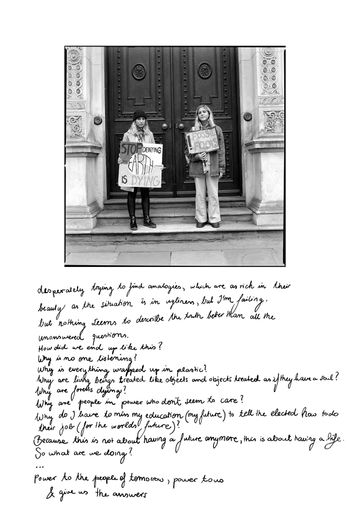 STOP DENYING
EARTH
IS DYING
desperately trying to find analogies, which are as rich in their
beauty as the situation is in ugliness, but I'm failing.
but nothing seems to describe the truth better than all the
unanswered questions.
How did we end up like this?
Why is no one listening?
Why is everything wrapped up in plastic?
Why are living beings treated like objects and objects treated as if they have a soul?
Why are forests dying?
Why are people in power who don't seem to care?
Why do I have to miss my education (my future) to tell the elected how to do
their job (for the worlds future)?
Because this is not about having a future anymore, this is about having a life.
So what are we doing?
...
Power to the people of tomorrow, power to us
& give us the answers